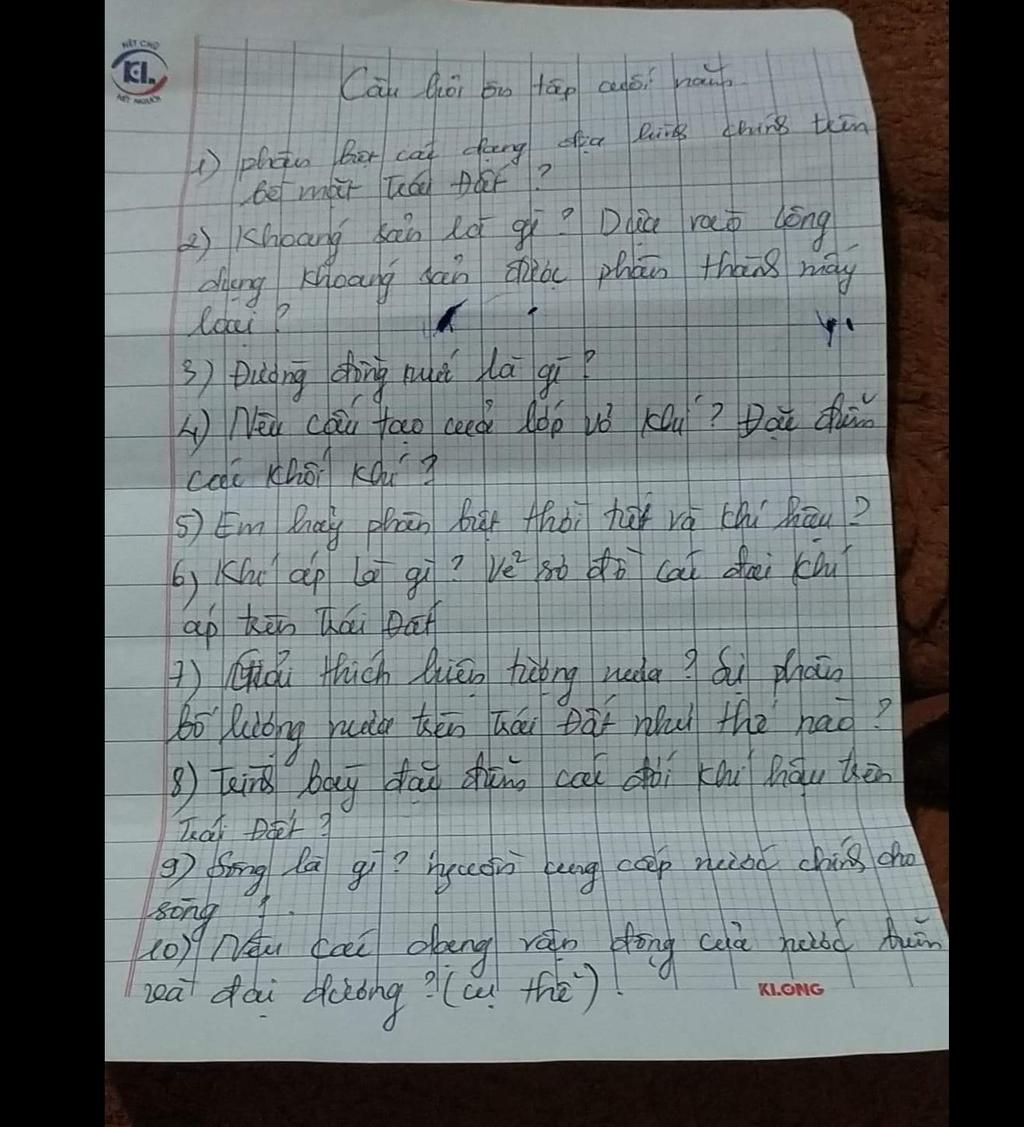 NÉT CHỮ
KL
NẾT NGƯỜI
Câu hỏi ôn tập cuối năm
1) phân biệt các dạng địa hình chính trên
bề mặt Trái Đất ?
2) Khoáng sản là gì ? Dựa vào công
dụng khoáng sản được phân thành mấy
loại ?
3) Đường đồng mức là gì ?
4) Nêu cấu tạo của lớp vỏ khí ? Đặc điểm
các khối khí ?
5) Em hãy phân biệt thời tiết và khí hậu ?
6) Khí áp là gì ? Vẽ sơ đồ các đai khí
áp trên Trái Đất
7) Giải thích hiện tượng mưa ? Sự phân
bố lượng mưa trên Trái Đất như thế nào ?
8) Trình bày đặc điểm các đới khí hậu trên
Trái Đất ?
9) Sông là gì ? nguồn cung cấp nước chính cho
sông ?
10) Nêu các dạng vận động của nước biển
và đại dương ? (cụ thể)
KLONG